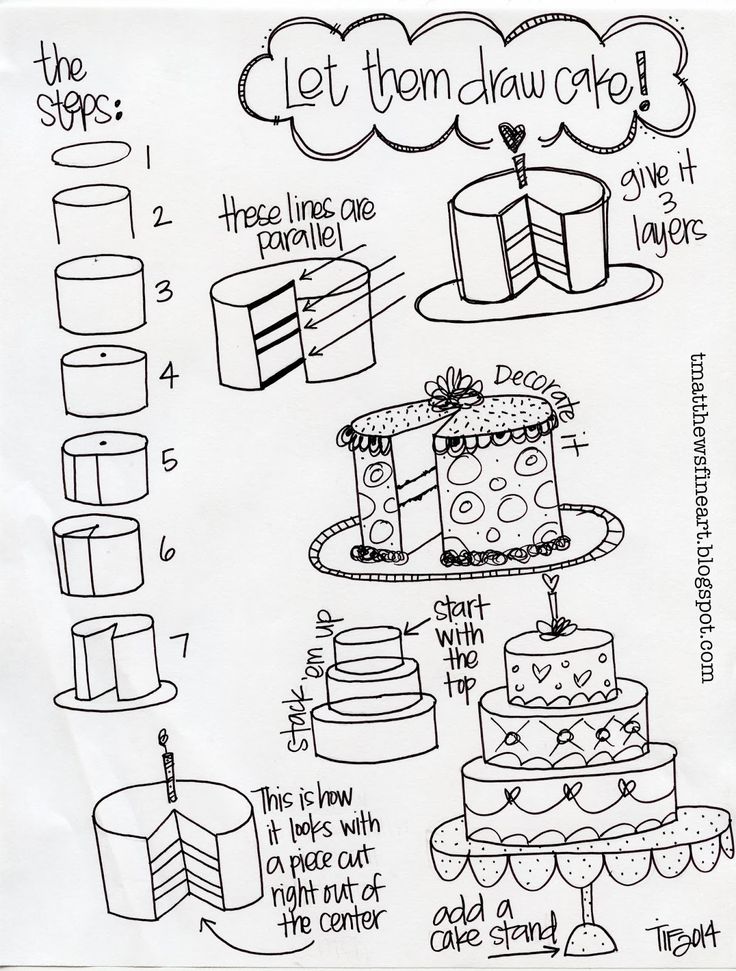 Let them draw cake!
the
steps:
1
2
3
4
5
6
7
these lines are
parallel
give it
3
layers
Decorate it
stack 'em up
start
with
the
top
This is how
it looks with
a piece cut
right out of
the center
add a
cake stand
TIF2014
tmatthewsfineart.blogspot.com